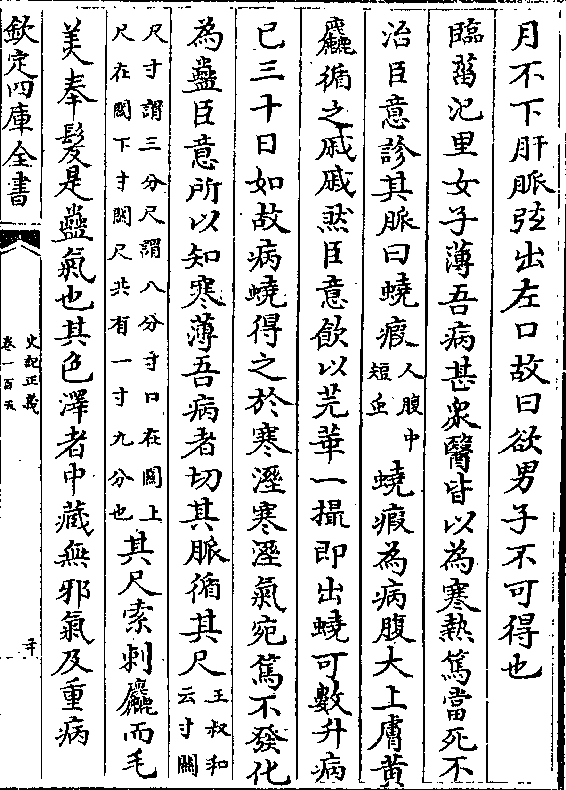 月不下肝脈弦出左口故曰欲男子不可得也
臨菑氾里女子薄吾病甚衆醫皆以為寒熱篤當死不
治臣意診其脈曰蟯瘕人腹中短虫蟯瘕為病腹大上膚黄
麤循之戚戚然臣意飲以芫華一撮即出蟯可數升病
已三十日如故病蟯得之於寒溼寒溼氣宛篤不發化
為蟲臣意所以知寒薄吾病者切其脈循其尺王叔和云寸關
尺寸謂三分尺謂八分寸口在關上尺在關下寸關尺共有一寸九分也其尺索刺麤而毛
美奉髮是蠱氣也其色澤者中藏無邪氣及重病
欽定四庫全書
史記正義
卷一百五
二十